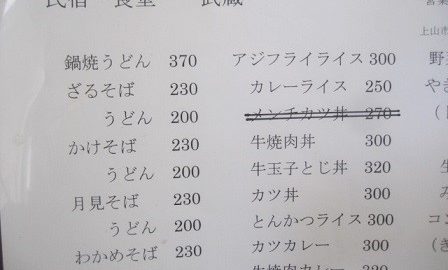 民宿 食堂 武蔵
鍋焼うどん 370
ざるそば 230
うどん 200
かけそば 230
うどん 200
月見そば 230
うどん 200
わかめそば 230
アジフライライス 300
カレーライス 250
メンチカツ丼 270
牛焼肉丼 300
牛玉子とじ丼 320
カツ丼 300
とんかつライス 300
カツカレー 300
牛焼肉カレー 320
営業
上山市
野
やき
コン